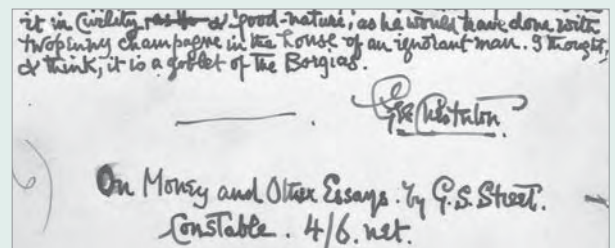 it in Civility & good-nature, as he would have done with
twopenny champagne in the house of an ignorant man. I thought,
& think, it is a goblet of the Borgias.
GK Chesterton.
On Money and Other Essays. by G.S. Street.
Constable. 4/6. net.